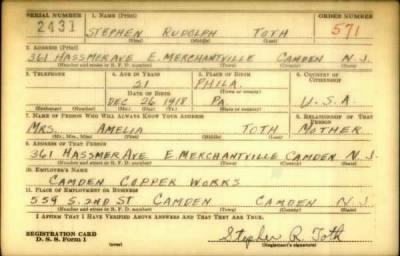 SERIAL NUMBER 1. NAME (Print) ORDER NUMBER
2431 STEPHEN RUDOLPH TOTH 571
(First) (Middle) (Last)
2. ADDRESS (Print)
361 HASSMER AVE E. MERCHANTVILLE CAMDEN N.J.
(Number and street or R. F. D. number) (Town) (County) (State)
3. TELEPHONE 4. AGE IN YEARS 5. PLACE OF BIRTH 6. COUNTRY OF CITIZENSHIP
21 PHILA.
DATE OF BIRTH (Town or county)
DEC 26 1918 PA U.S.A.
(Exchange) (Number) (Mo.) (Day) (Yr.) (State or country)
7. NAME OF PERSON WHO WILL ALWAYS KNOW YOUR ADDRESS 8. RELATIONSHIP OF THAT PERSON
MRS. AMELIA TOTH MOTHER
(Mr., Mrs., Miss) (First) (Middle) (Last)
9. ADDRESS OF THAT PERSON
361 HASSMER AVE E. MERCHANTVILLE CAMDEN N.J.
(Number and street or R. F. D. number) (Town) (County) (State)
10. EMPLOYER'S NAME
CAMDEN COPPER WORKS
11. PLACE OF EMPLOYMENT OR BUSINESS
559 S. 2ND ST CAMDEN CAMDEN N.J.
(Number and street or R. F. D. number) (Town) (County) (State)
I AFFIRM THAT I HAVE VERIFIED ABOVE ANSWERS AND THAT THEY ARE TRUE.
REGISTRATION CARD
D. S. S. Form 1 (over) Stephen R. Toth
(Registrant's signature)